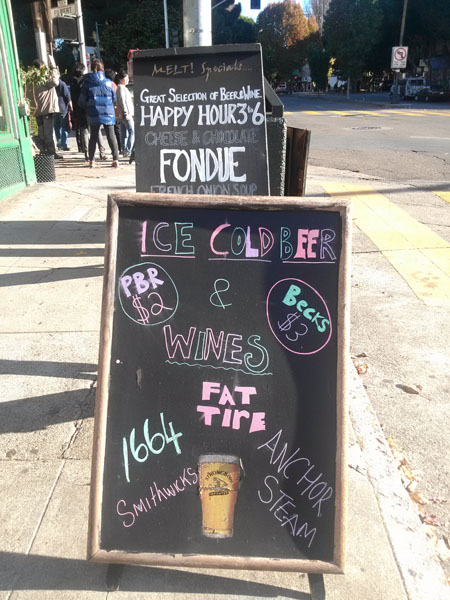 MELT! Specials...
GREAT SELECTION OF BEER & WINE
HAPPY HOUR 3-6
CHEESE & CHOCOLATE
FONDUE
FRENCH ONION SOUP
ICE COLD BEER
PBR
$2
&
Becks
$3
WINES
FAT
TIRE
1664
SMITHWICKS
ANCHOR
STEAM